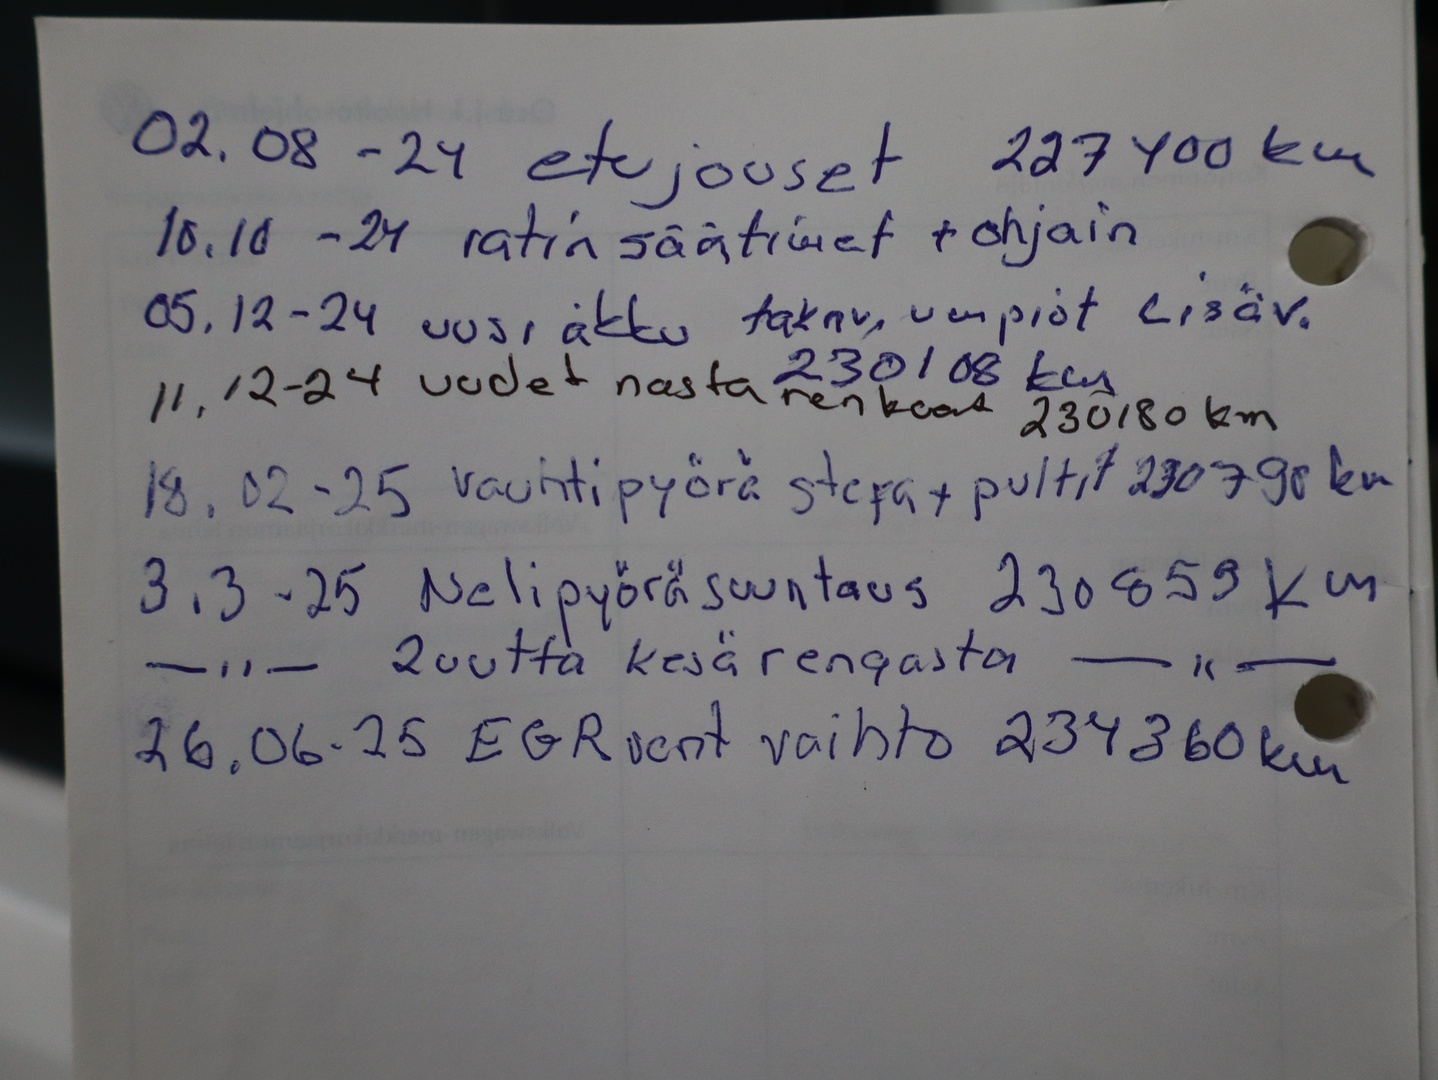 02.08-24 etujouset 227400 km
10.10-24 ratin säätimet + ohjain
05.12-24 uusi akku takav. umpiot Lisäv.
230108 km
11.12-24 uudet nastarenkaat 230180 km
18.02-25 vauhtipyörä stefa + pultit 230790 km
3.3-25 Nelipyöräsuuntaus 230859 km
—"— 2 uutta kesärengasta —"—
26.06-25 EGR vent vaihto 234360 km
Volkswagen-merkkikorjaamon leima
Volkswagen-merkkikorjaamon leima